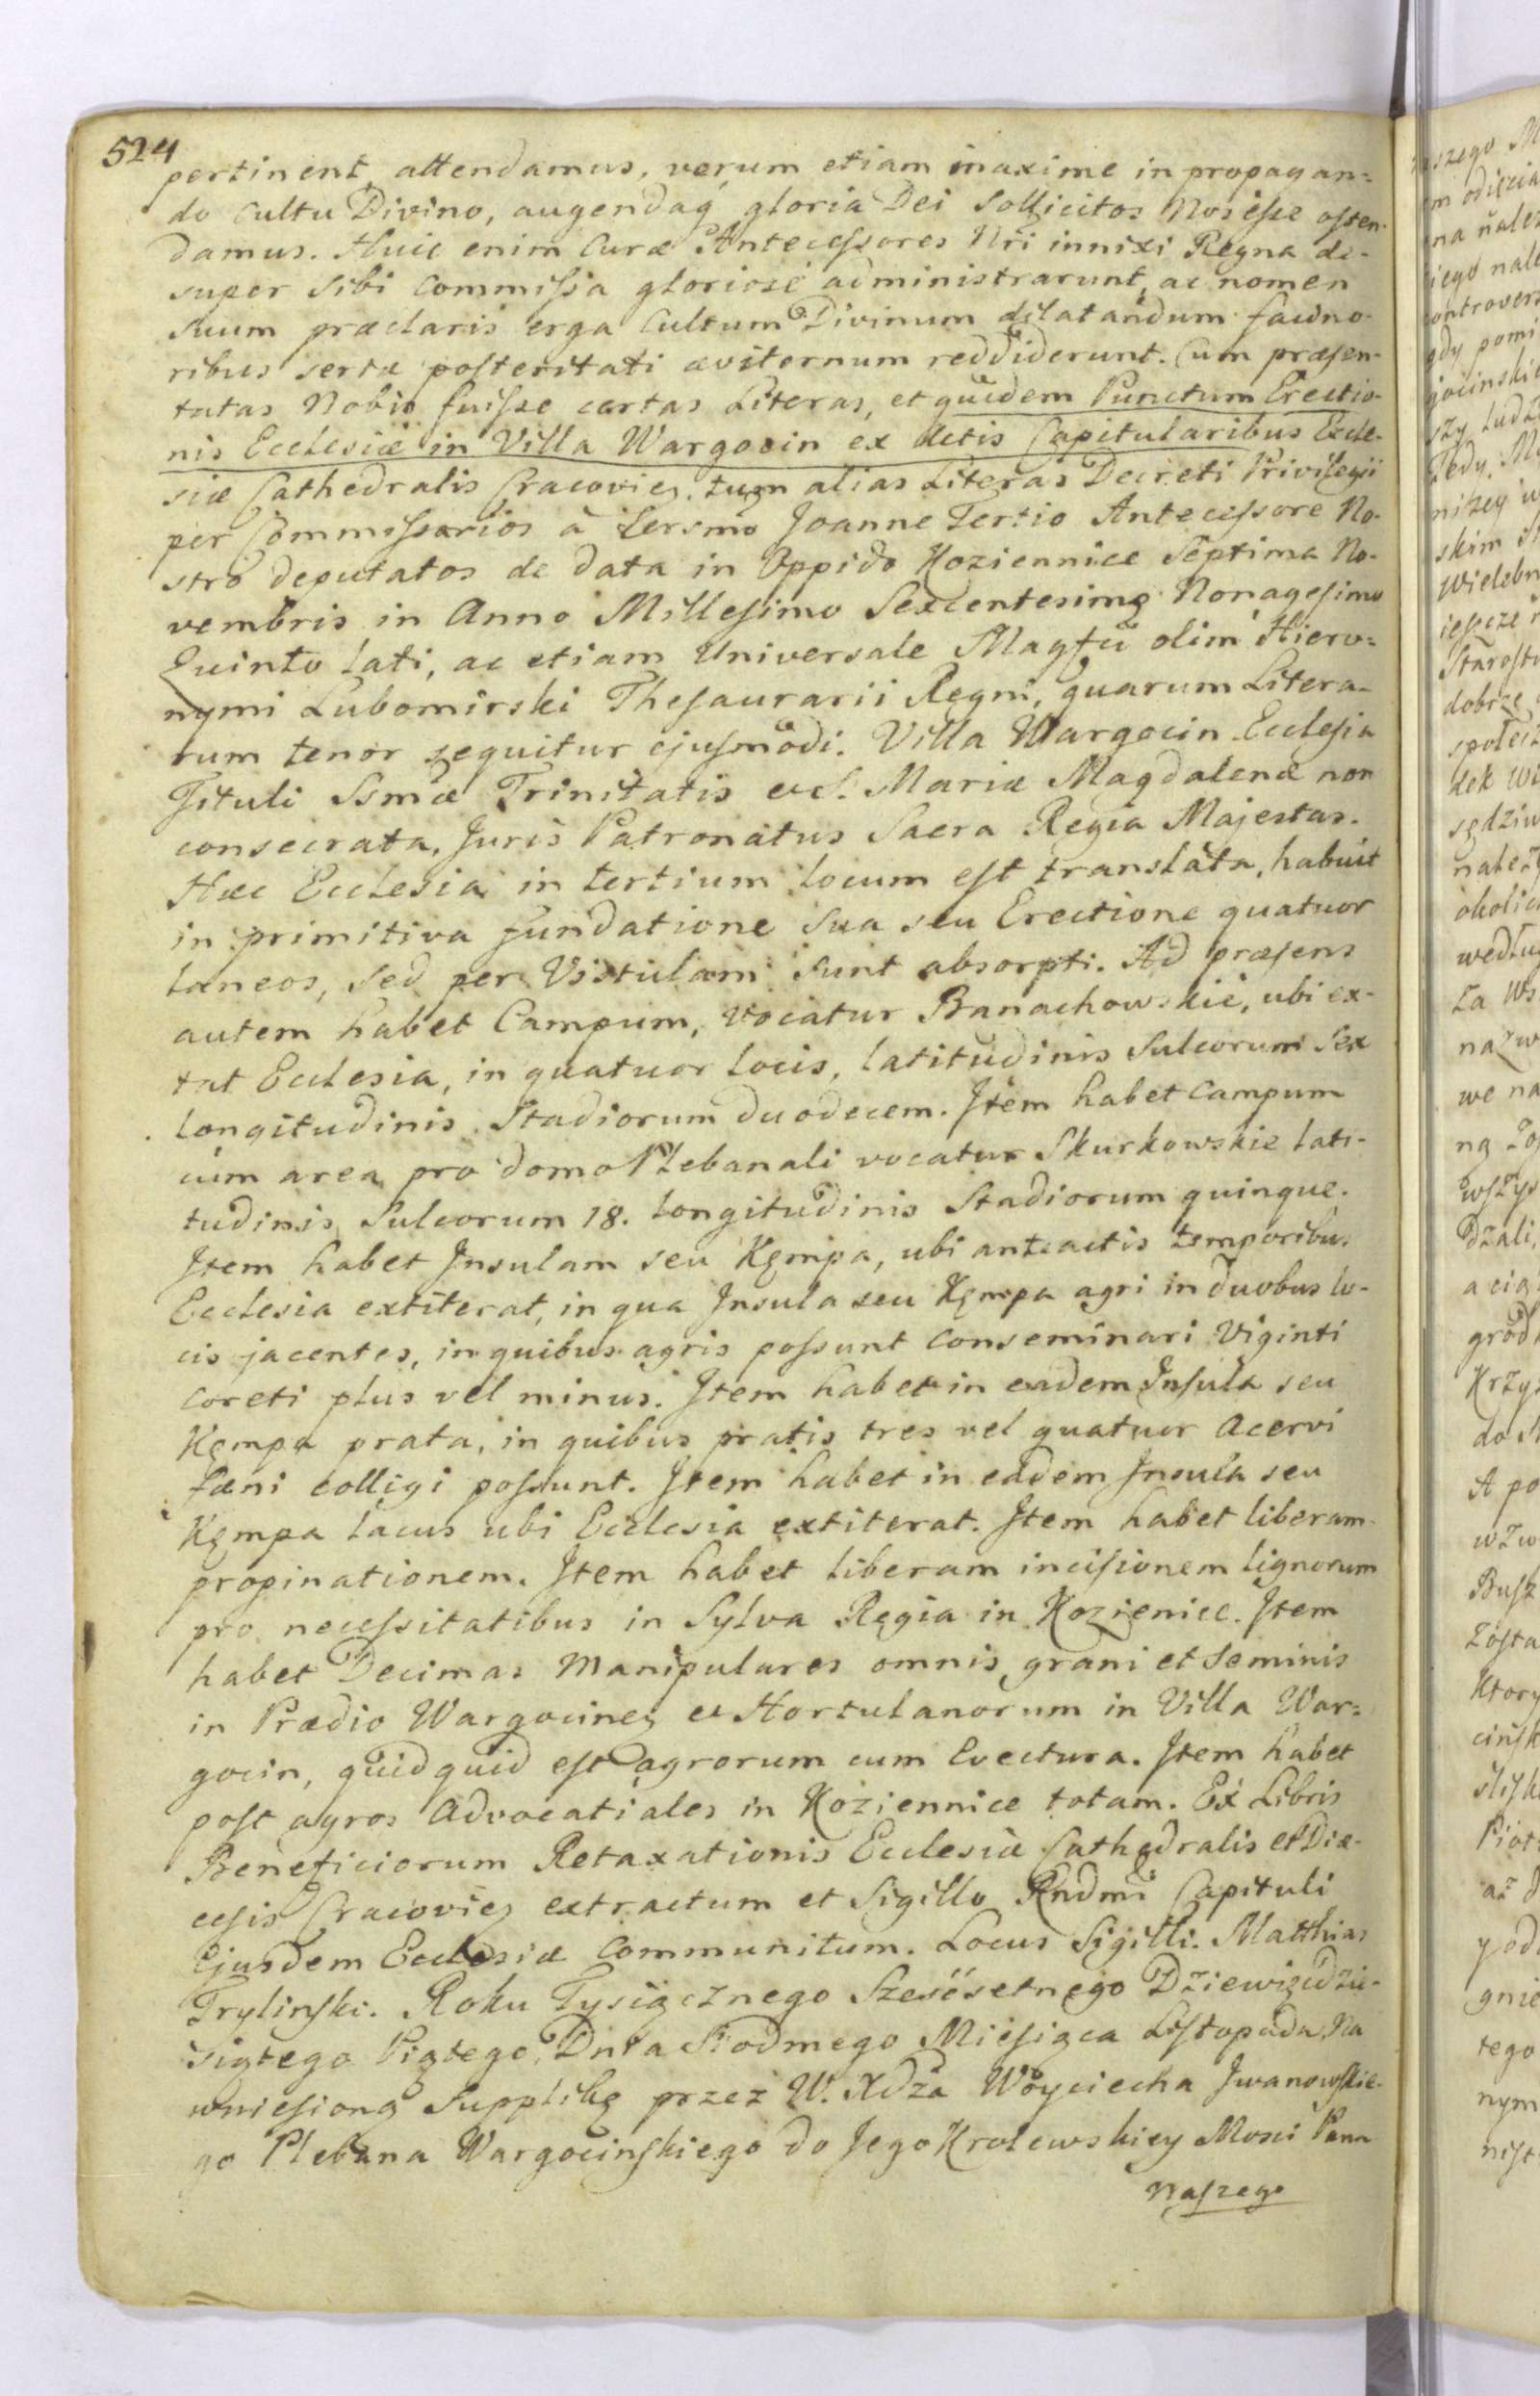 524
pertinent attendamus, verum etiam maxime in propagan=
do Cultu Divino, augendaq gloria Dei Sollicitos Nos esse osten-
damus. Huic enim Curæ Antecessores Nri innixi Regna de-
super Sibi Commissa gloriose administrarunt, ac nomen
suum præclaris erga Cultum Divinum dilatandum facino-
ribus seræ posteritati æviternum reddiderunt. Cum præsen-
tatas Nobis fuisse certas Literas, et quidem Punctum Erectio-
nis Ecclesiæ in Villa Wargocin ex Actis Capitularibus Eccle-
siæ Cathedralis Cracovien. tum alias Literas Decreti Privilegii
per Commissarios à Sersmo Joanne Tertio Antecessore No-
stro deputatos de data in Oppido Koziennice Septima No-
vembris in Anno Millesimo Sexcentesimo Nonagesimo
Quinto lati, ac etiam Universale Magfci olim Hiero=
nymi Lubomirski Thesaurarii Regni, quarum Litera-
rum tenor sequitur ejusmodi. Villa Wargocin Ecclesia
Tituli Ssmæ Trinitatis et S. Mariæ Magdalenæ non
consecrata, Juris Patronatus Sacra Regia Majestas.
Hæc Ecclesia in tertium locum est translata, habuit
in primitiva fundatione Sua seu Erectione quatuor
laneos, sed per Vistulam sunt absorpti. Ad præsens
autem habet Campum, vocatur Banachowskie, ubi ex-
tat Ecclesia, in quatuor locis, latitudinis Sulcorum Sex
longitudinis Stadiorum duodecem. Item habet Campum
cum area pro domo Plebanali vocatur Skurkowskie lati-
tudinis Sulcorum 18. longitudinis Stadiorum quinque.
Item habet Insulam seu Kęmpa, ubi anteactis temporibus
Ecclesia extiterat, in qua Insula seu Kęmpa agri in duobus lo-
cis jacentes, in quibus agris possunt conseminari Viginti
Coreti plus vel minus. Item habet in eadem Insula seu
Kęmpa prata, in quibus pratis tres vel quatuor Acervi
fæni colligi possunt. Item habet in eadem Insula seu
Kęmpa lacus ubi Ecclesia extiterat. Item habet liberam
propinationem. Item habet liberam incisionem lignorum
pro necessitatibus in Sylva Regia in Kozienice. Item
habet Decimas Manipulares omnis grani et Seminis
in Prædio Wargocinen et Hortulanorum in Villa War=
gocin, quidquid est agrorum cum Evectura. Item habet
post agros Advocatiales in Koziennice totam. Ex Libris
Beneficiorum Retaxationis Ecclesiæ Cathedralis et Diæ-
cesis Cracovien extractum et Sigillo Rndmi Capituli
Ejusdem Ecclesiæ Communitum. Locus Sigilli. Matthias
Trylinski. Roku Tysiącznego Szesćsetnego Dziewięcdzie-
siątego Piątego, Dnia Siodmego Miesiąca Listopada Na
wniesioną Supplikę przez W. Xdza Woyciecha Iwanowskie-
go Plebana Wargocinskiego do Jego Krolewskiey Mosci Pana
Naszego